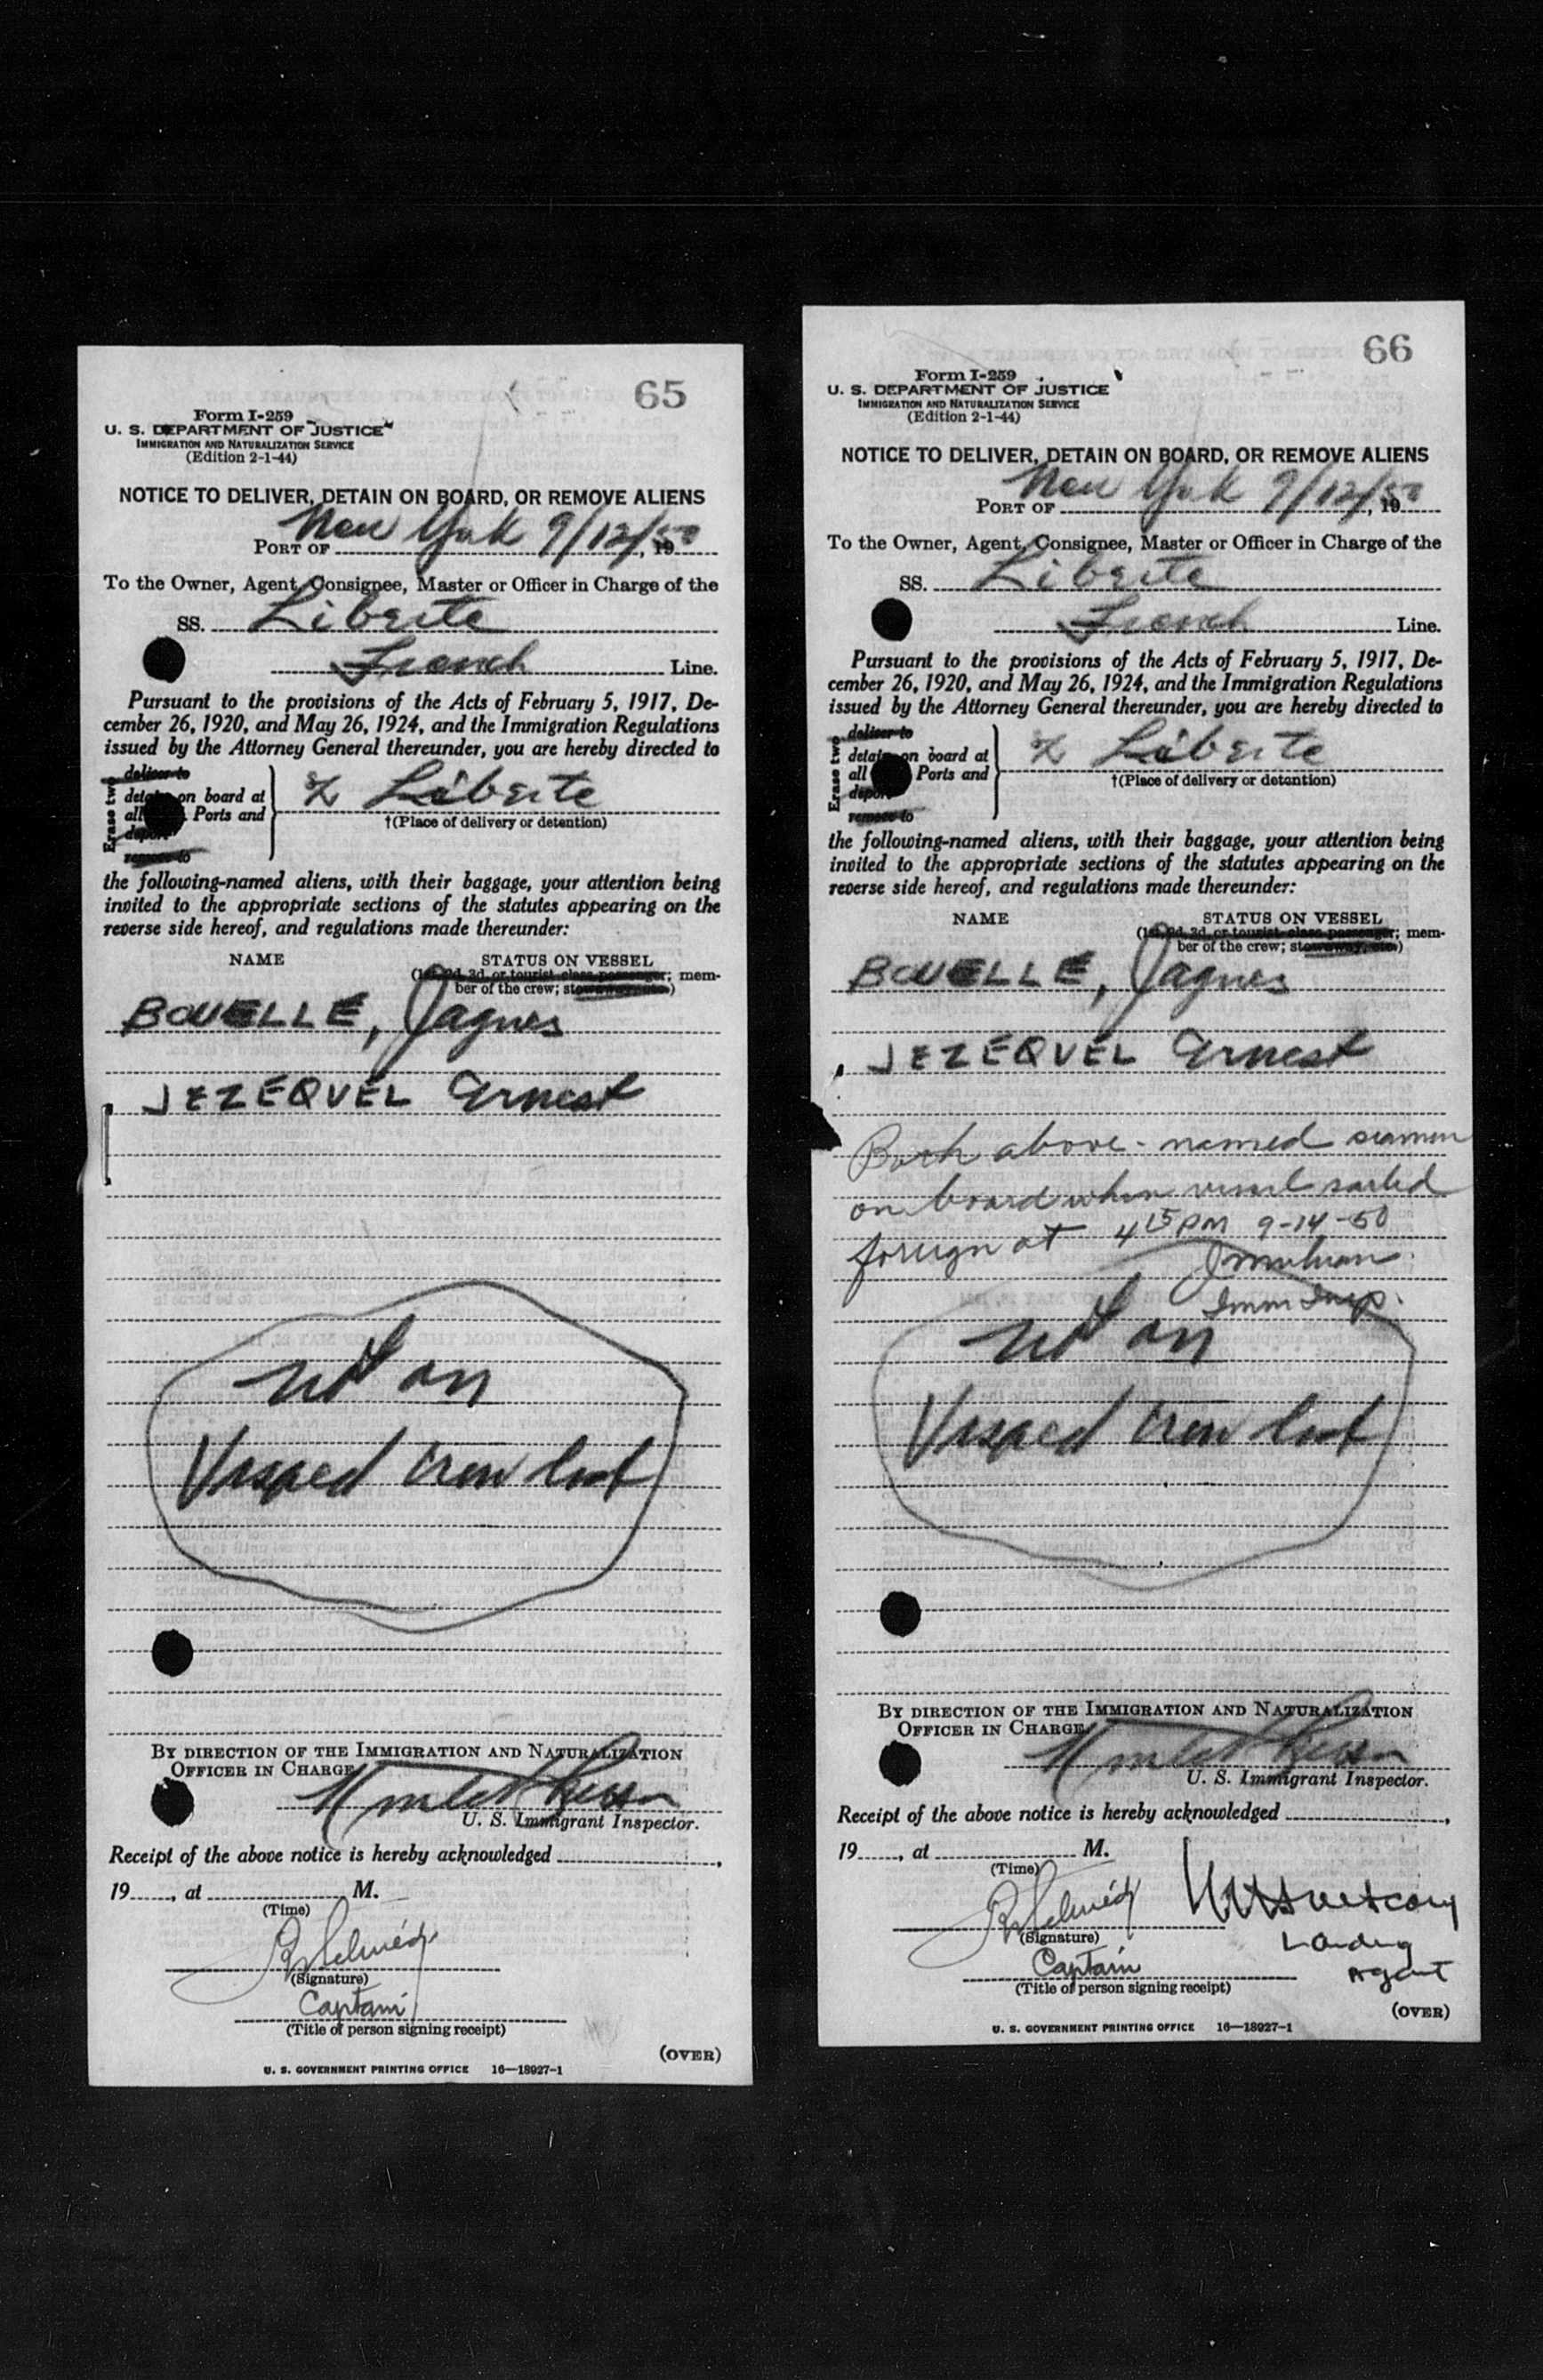 65
Form I-259
U. S. DEPARTMENT OF JUSTICE
IMMIGRATION AND NATURALIZATION SERVICE
(Edition 2-1-44)
NOTICE TO DELIVER, DETAIN ON BOARD, OR REMOVE ALIENS
PORT OF New York 9/12/50, 19
To the Owner, Agent, Consignee, Master or Officer in Charge of the
SS. Liberte
French Line.
Pursuant to the provisions of the Acts of February 5, 1917, De-
cember 26, 1920, and May 26, 1924, and the Immigration Regulations
issued by the Attorney General thereunder, you are hereby directed to
Erase two
deliver to
detain on board at
all Ports and
deport
remove to
Liberte
†(Place of delivery or detention)
the following-named aliens, with their baggage, your attention being
invited to the appropriate sections of the statutes appearing on the
reverse side hereof, and regulations made thereunder:
NAME STATUS ON VESSEL
(1st, 2d, 3d, or tourist-class passenger; mem-
ber of the crew; stowaway, etc.)
BOUELLE, Jaques
JEZEQVEL Ernest
not on
Visaed Crew list
BY DIRECTION OF THE IMMIGRATION AND NATURALIZATION
OFFICER IN CHARGE
U. S. Immigrant Inspector.
Receipt of the above notice is hereby acknowledged ,
19 , at M.
(Time)
(Signature)
Captain
(Title of person signing receipt)
(OVER)
U. S. GOVERNMENT PRINTING OFFICE 16—18927-1
66
Form I-259
U. S. DEPARTMENT OF JUSTICE
IMMIGRATION AND NATURALIZATION SERVICE
(Edition 2-1-44)
NOTICE TO DELIVER, DETAIN ON BOARD, OR REMOVE ALIENS
PORT OF New York 9/12/50, 19
To the Owner, Agent, Consignee, Master or Officer in Charge of the
SS. Liberte
French Line.
Pursuant to the provisions of the Acts of February 5, 1917, De-
cember 26, 1920, and May 26, 1924, and the Immigration Regulations
issued by the Attorney General thereunder, you are hereby directed to
Erase two
deliver to
detain on board at
all Ports and
deport
remove to
Liberte
†(Place of delivery or detention)
the following-named aliens, with their baggage, your attention being
invited to the appropriate sections of the statutes appearing on the
reverse side hereof, and regulations made thereunder:
NAME STATUS ON VESSEL
(1st, 2d, 3d, or tourist-class passenger; mem-
ber of the crew; stowaway, etc.)
BOUELLE, Jaques
JEZEQVEL Ernest
Both above-named seamen
on board when vessel sailed
foreign at 4 15 PM 9-14-50
Imm Insp.
not on
Visaed Crew list
BY DIRECTION OF THE IMMIGRATION AND NATURALIZATION
OFFICER IN CHARGE
U. S. Immigrant Inspector.
Receipt of the above notice is hereby acknowledged ,
19 , at M.
(Time)
(Signature)
Landing
Agent
Captain
(Title of person signing receipt)
(OVER)
U. S. GOVERNMENT PRINTING OFFICE 16—18927-1